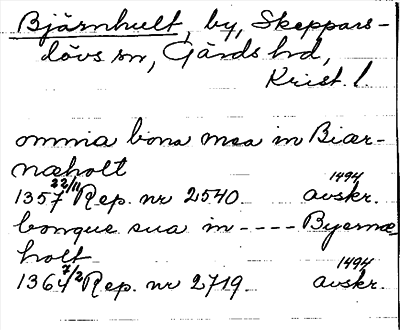 Bjärnhult, by, Skeppars-
lövs sn, Gärds hd,
Krist. l.
omnia bona mea in Biær-
næholt
1357 22/11 Rep. nr 2540 1494 avskr.
bonque sua in ---- Byernæ-
holt
1364 7/2 Rep. nr 2719. 1494 avskr.